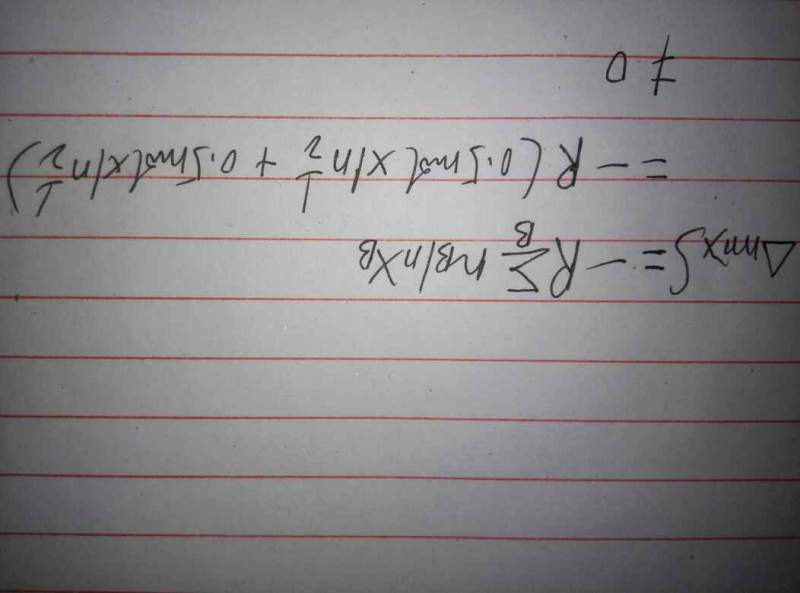 ΔmixS = -R∑B nB ln xB
= -R(0.5mol×ln 1/2 + 0.5mol×ln 1/2)
≠ 0